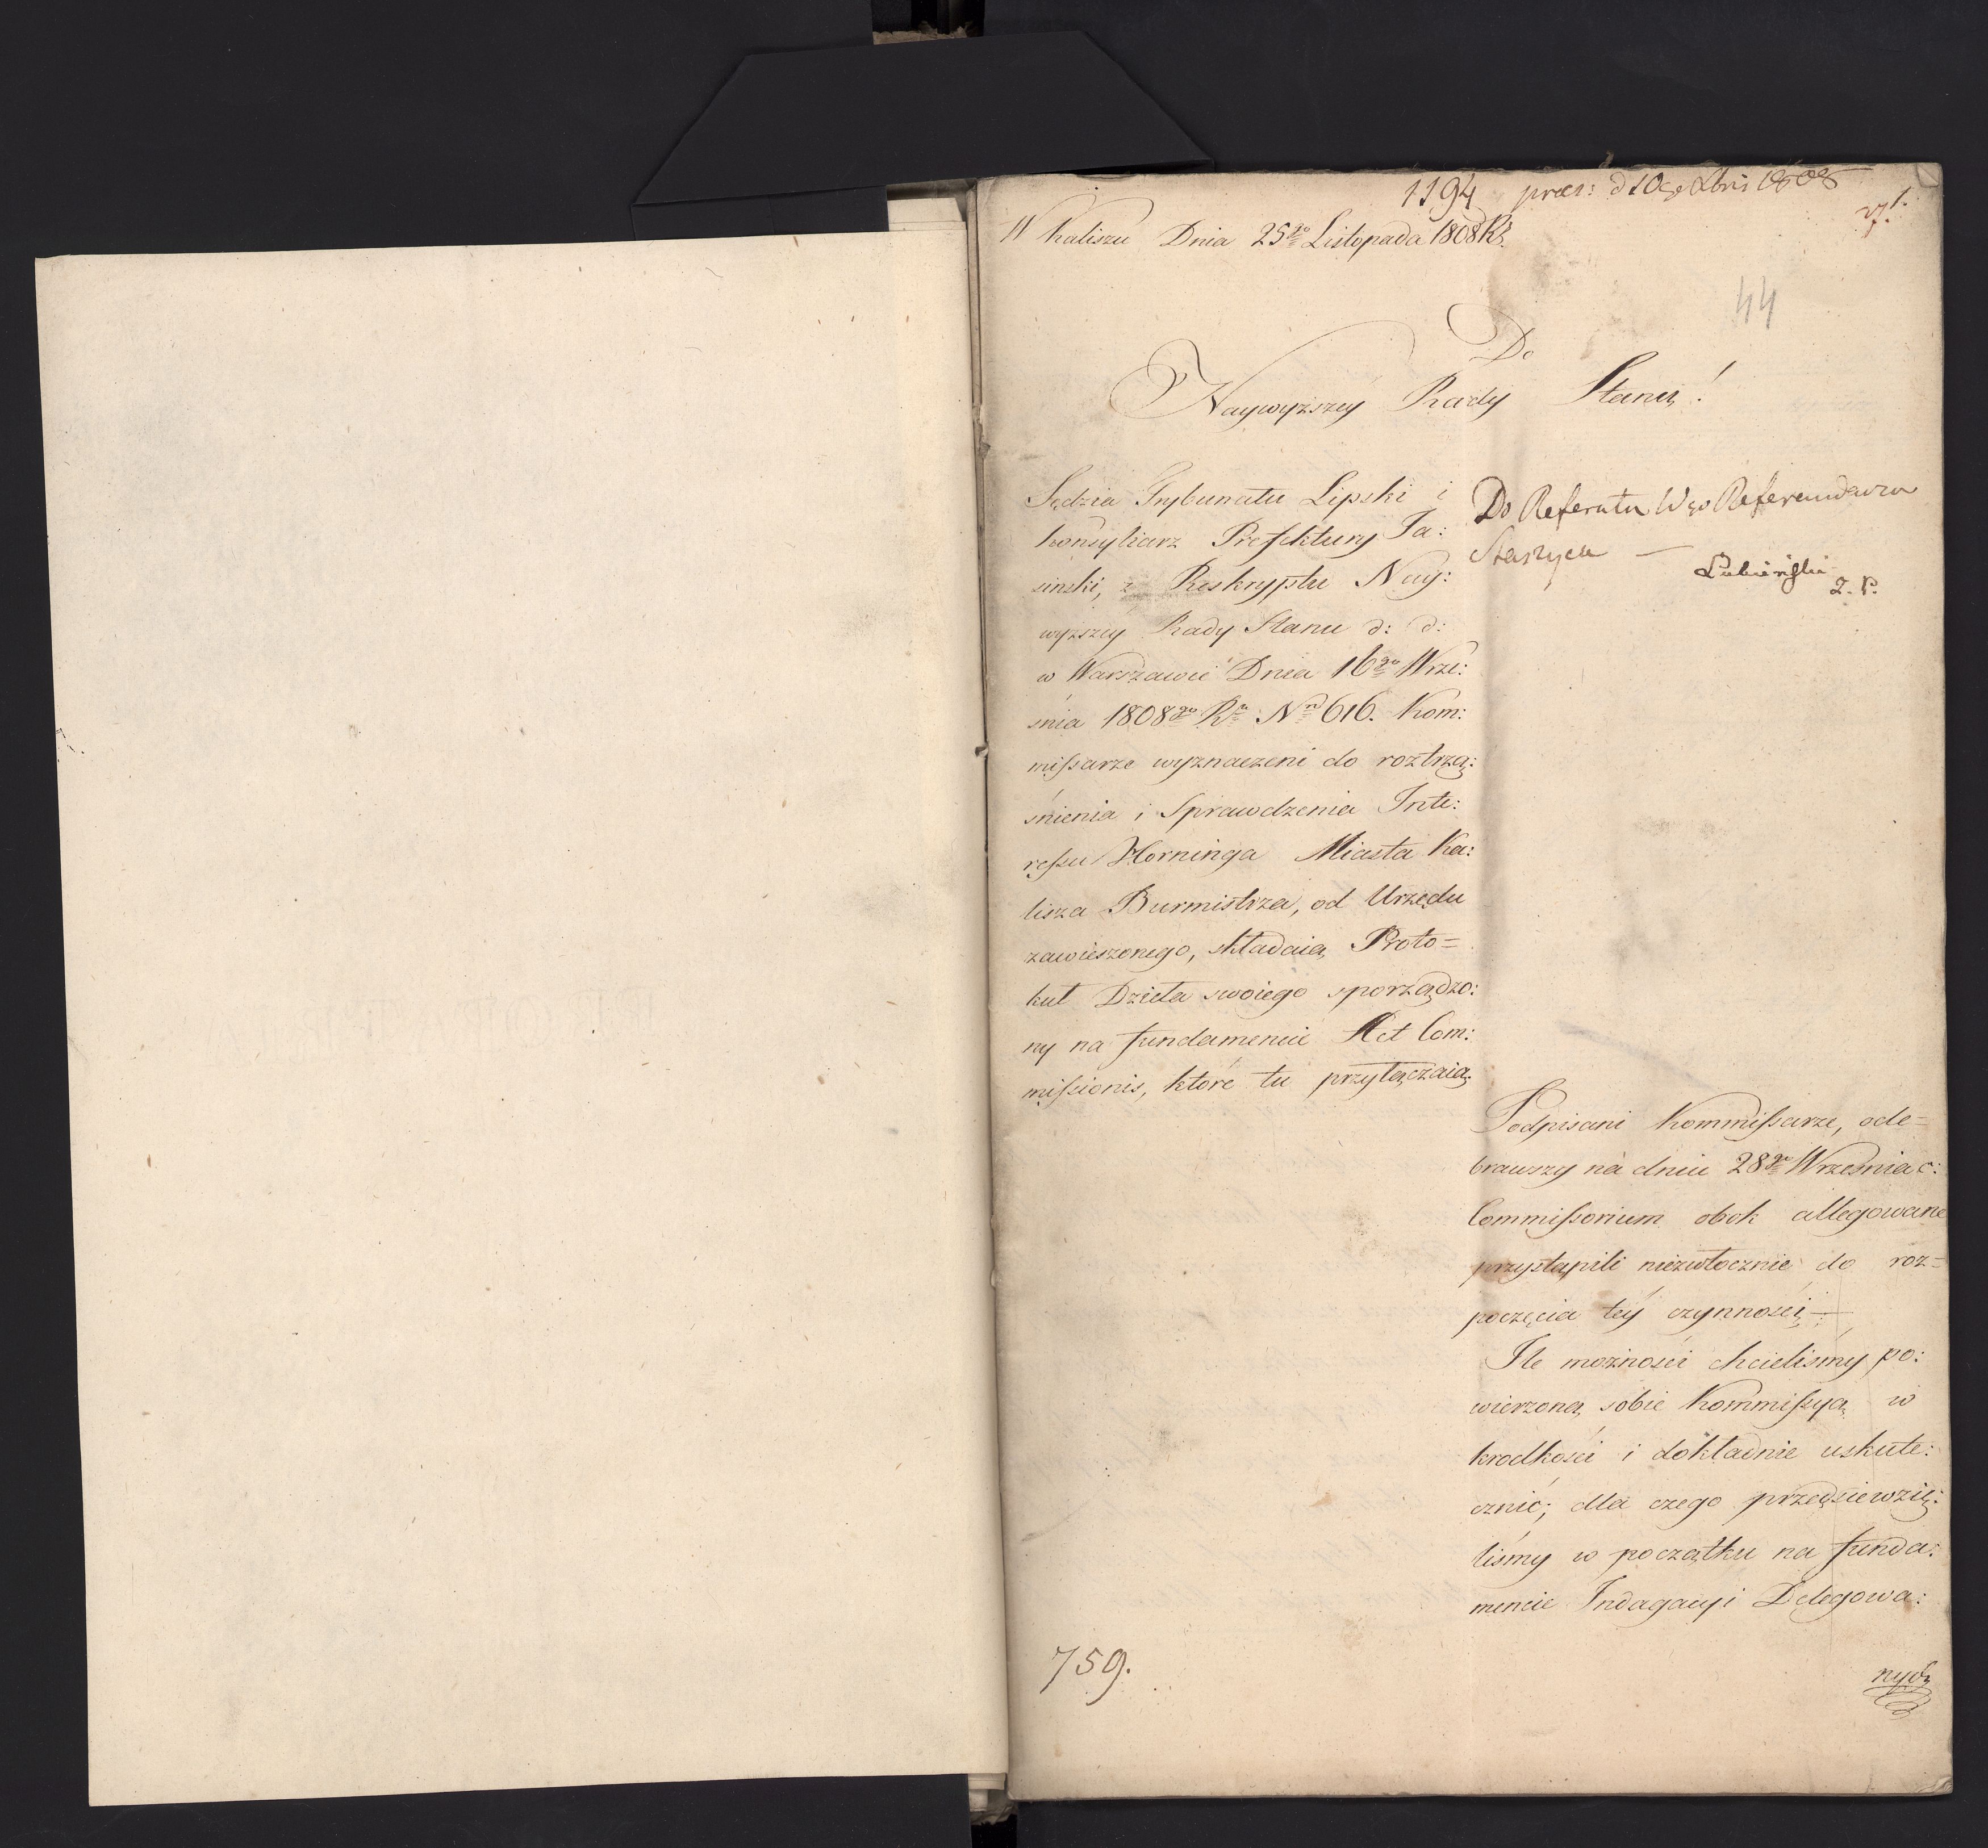 1194 præs: d 10go Xbris 1808
W Kaliszu Dnia 25go Listopada 1808 R.
44
Do
Naywyższey Rady Stanu!
Sędzia Trybunału Lipski i
Konsyliarz Prefektury Ja:
sinski, z Reskryptu Nay:
wyższey Rady Stanu d: d:
w Warszawie Dnia 16go Wrze:
śnia 1808go Ru No 616. Kom:
mißarze wyznaczeni do roztrzą:
śnienia i Sprawdzenia Inte:
reßu Horninga Miasta Ka:
lisza Burmistrza, od Urzędu
zawieszonego, składaią Proto=
kuł Dzieła swoiego sporządzo:
ny na fundamencie Act Com:
mißionis, które tu przyłączaią.
Do Referatu Wgo Referendarza
Staszyca —
Lubieński
Podpisani Kommißarze, ode=
brawszy na dniu 28go Września c:
Commißorium obok allegowane
przystąpili niezwłocznie do roz=
poczęcia téy czynności —
Ile możności chcieliśmy po:
wierzoną sobie Kommißyą w
krodkości i dokładnie uskute:
cznić; dla czego przedsiewzię:
liśmy w początku na funda:
mencie Indagacyi Delegowa:
nych
759.